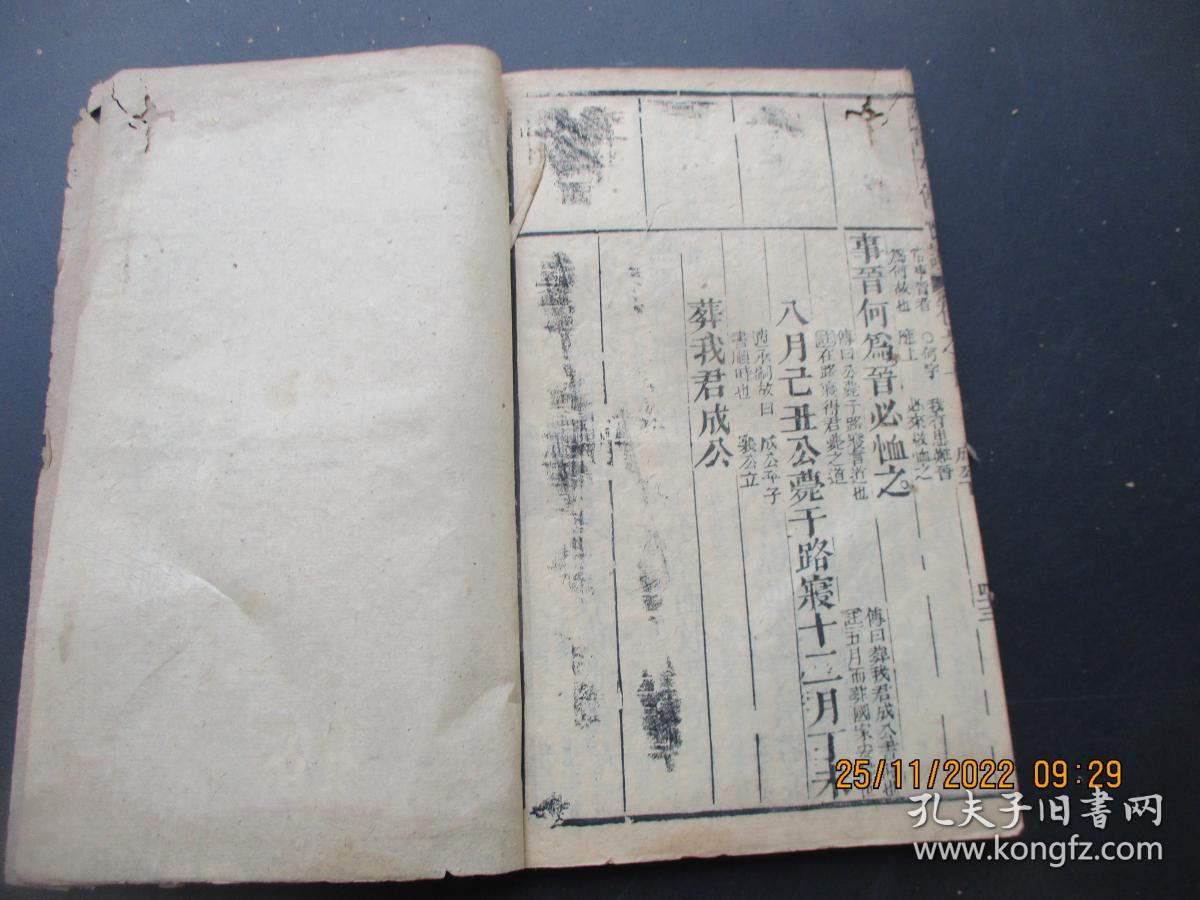 事晉何爲晉必恤之
爲何故也 〇何字 應上
我有患難晉
必來救恤之
八月己丑公薨于路寢十二月丁未
傳曰公薨于路寢言道也
註在路寢得君薨之道
傳曰葬我君成公書順也
註五月而葬國家安
適承嗣故曰 成公卒子
書順時也 襄公立
葬我君成公
25/11/2022 09:29
孔夫子旧书网
www.kongfz.com